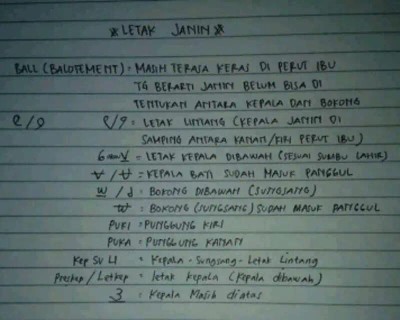 * LETAK JANIN *
BALL (BALOTEMENT) = MASIH TERASA KERAS DI PERUT IBU
YG BERARTI JANIN BELUM BISA DI
TENTUKAN ANTARA KEPALA DAN BOKONG
= LETAK LINTANG (KEPALA JANIN DI
SAMPING ANTARA KANAN/KIRI PERUT IBU)
= LETAK KEPALA DIBAWAH (SESUAI SUMBU LAHIR)
= KEPALA BAYI SUDAH MASUK PANGGUL
= BOKONG DIBAWAH (SUNGSANG)
= BOKONG (SUNGSANG) SUDAH MASUK PANGGUL
PUKI = PUNGGUNG KIRI
PUKA = PUNGGUNG KANAN
Kep SU LI = Kepala - Sungsang - Letak Lintang
Preskep / Letkep = letak kepala (Kepala dibawah)
3 = Kepala Masih diatas